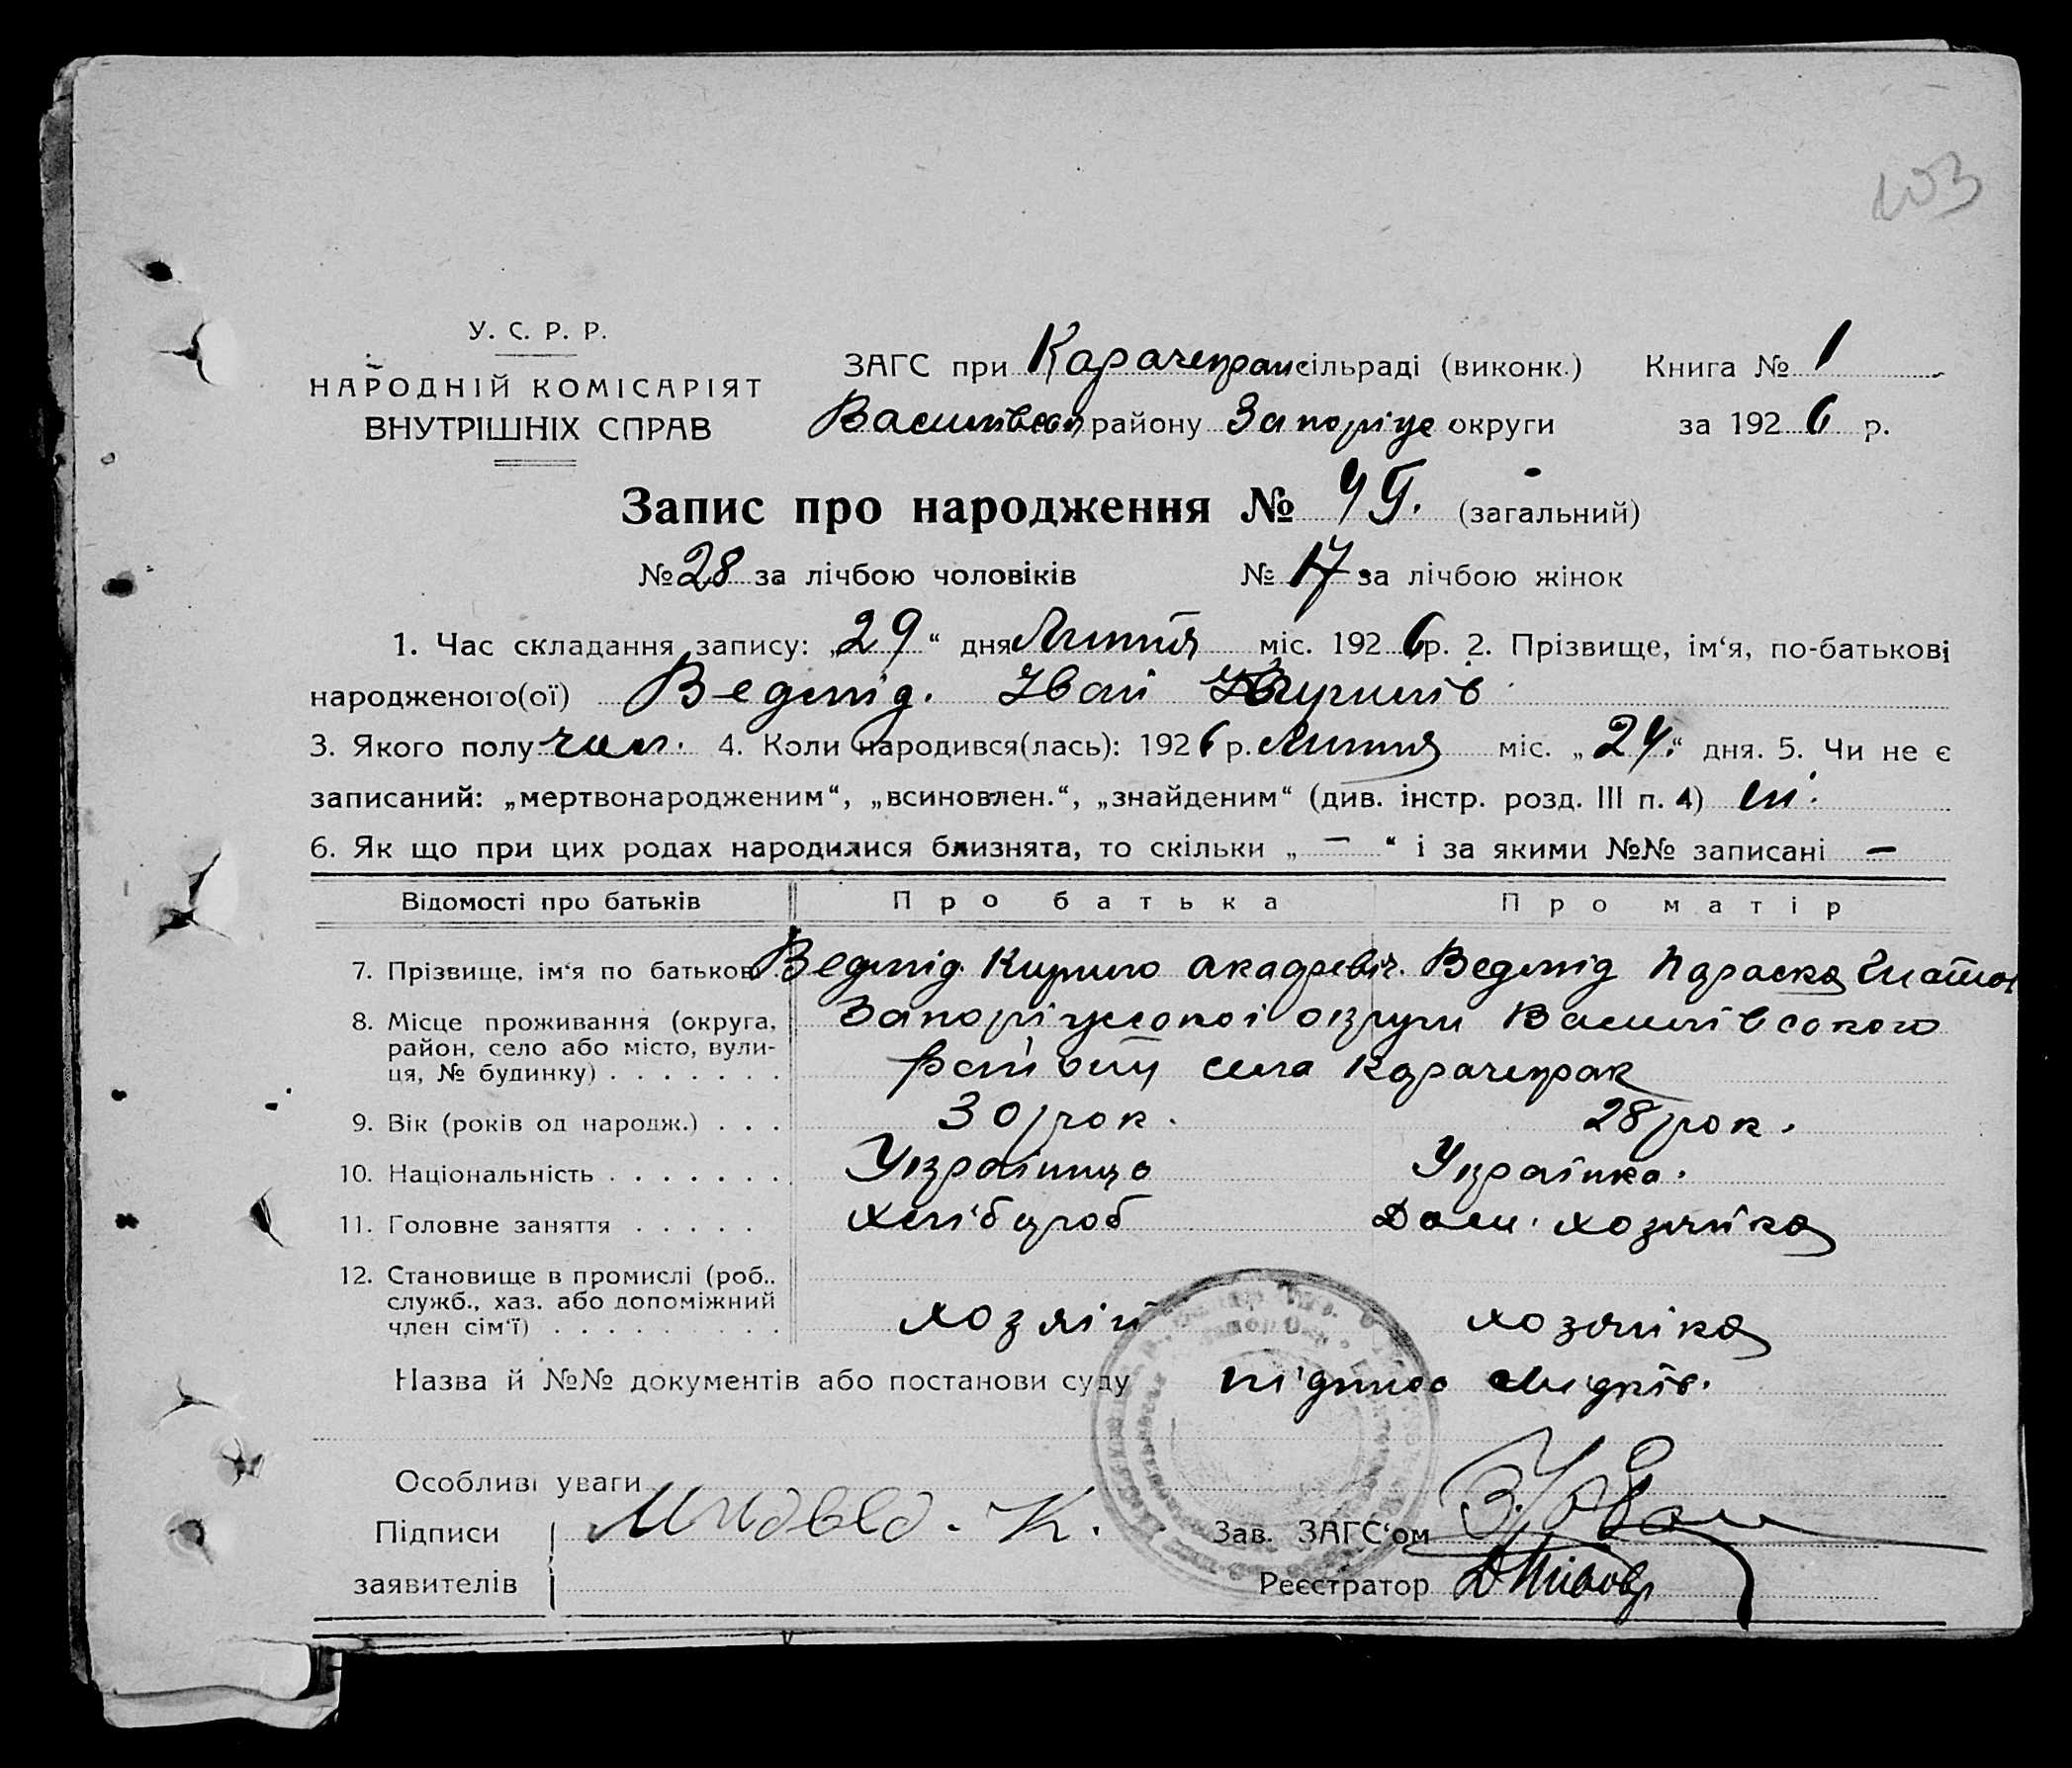 103
У. С. Р. Р.
НАРОДНІЙ КОМІСАРІЯТ
ВНУТРІШНІХ СПРАВ
ЗАГС при Карачекран сільраді (виконк.) Книга № 1
Василівськ району Запоріже округи за 1926 р.
Запис про народження № 45. (загальний)
№ 28 за лічбою чоловіків № 17 за лічбою жінок
1. Час складання запису: „29“ дня Липня міс. 1926 р. 2. Прізвище, ім‘я, по-батькові
народженого(ої) Ведмід. Іван Кирилів
3. Якого полу чол. 4. Коли народився(лась): 1926 р. Липня міс. „24.“ дня. 5. Чи не є
записаний: „мертвонародженим“, „всиновлен.“, „знайденим“ (див. інстр. розд. III п. 4) ні.
6. Як що при цих родах народилися близнята, то скільки „ — “ і за якими №№ записані —
Відомості про батьків Про батька Про матір
7. Прізвище, ім‘я по батьков. Ведмід Кирило Ведмід Параска
8. Місце проживання (округа, Запоріжської округи Василівського
район, село або місто, вули-
ця, № будинку) . . . . . . . району села Карачекрак
9. Вік (років од народж.) . . . 30 рок. 28 рок.
10. Національність . . . . . . . Українць Українка.
11. Головне заняття . . . . . Хлібороб Дом. хозяйка
12. Становище в промислі (роб..
служб., хаз. або допоміжний
член сім‘ї) . . . . . . . . . хозяін хозяйка
Назва й №№ документів або постанови суду
Особливі уваги
Підписи
Зав. ЗАГС‘ом
заявителів
Реєстратор